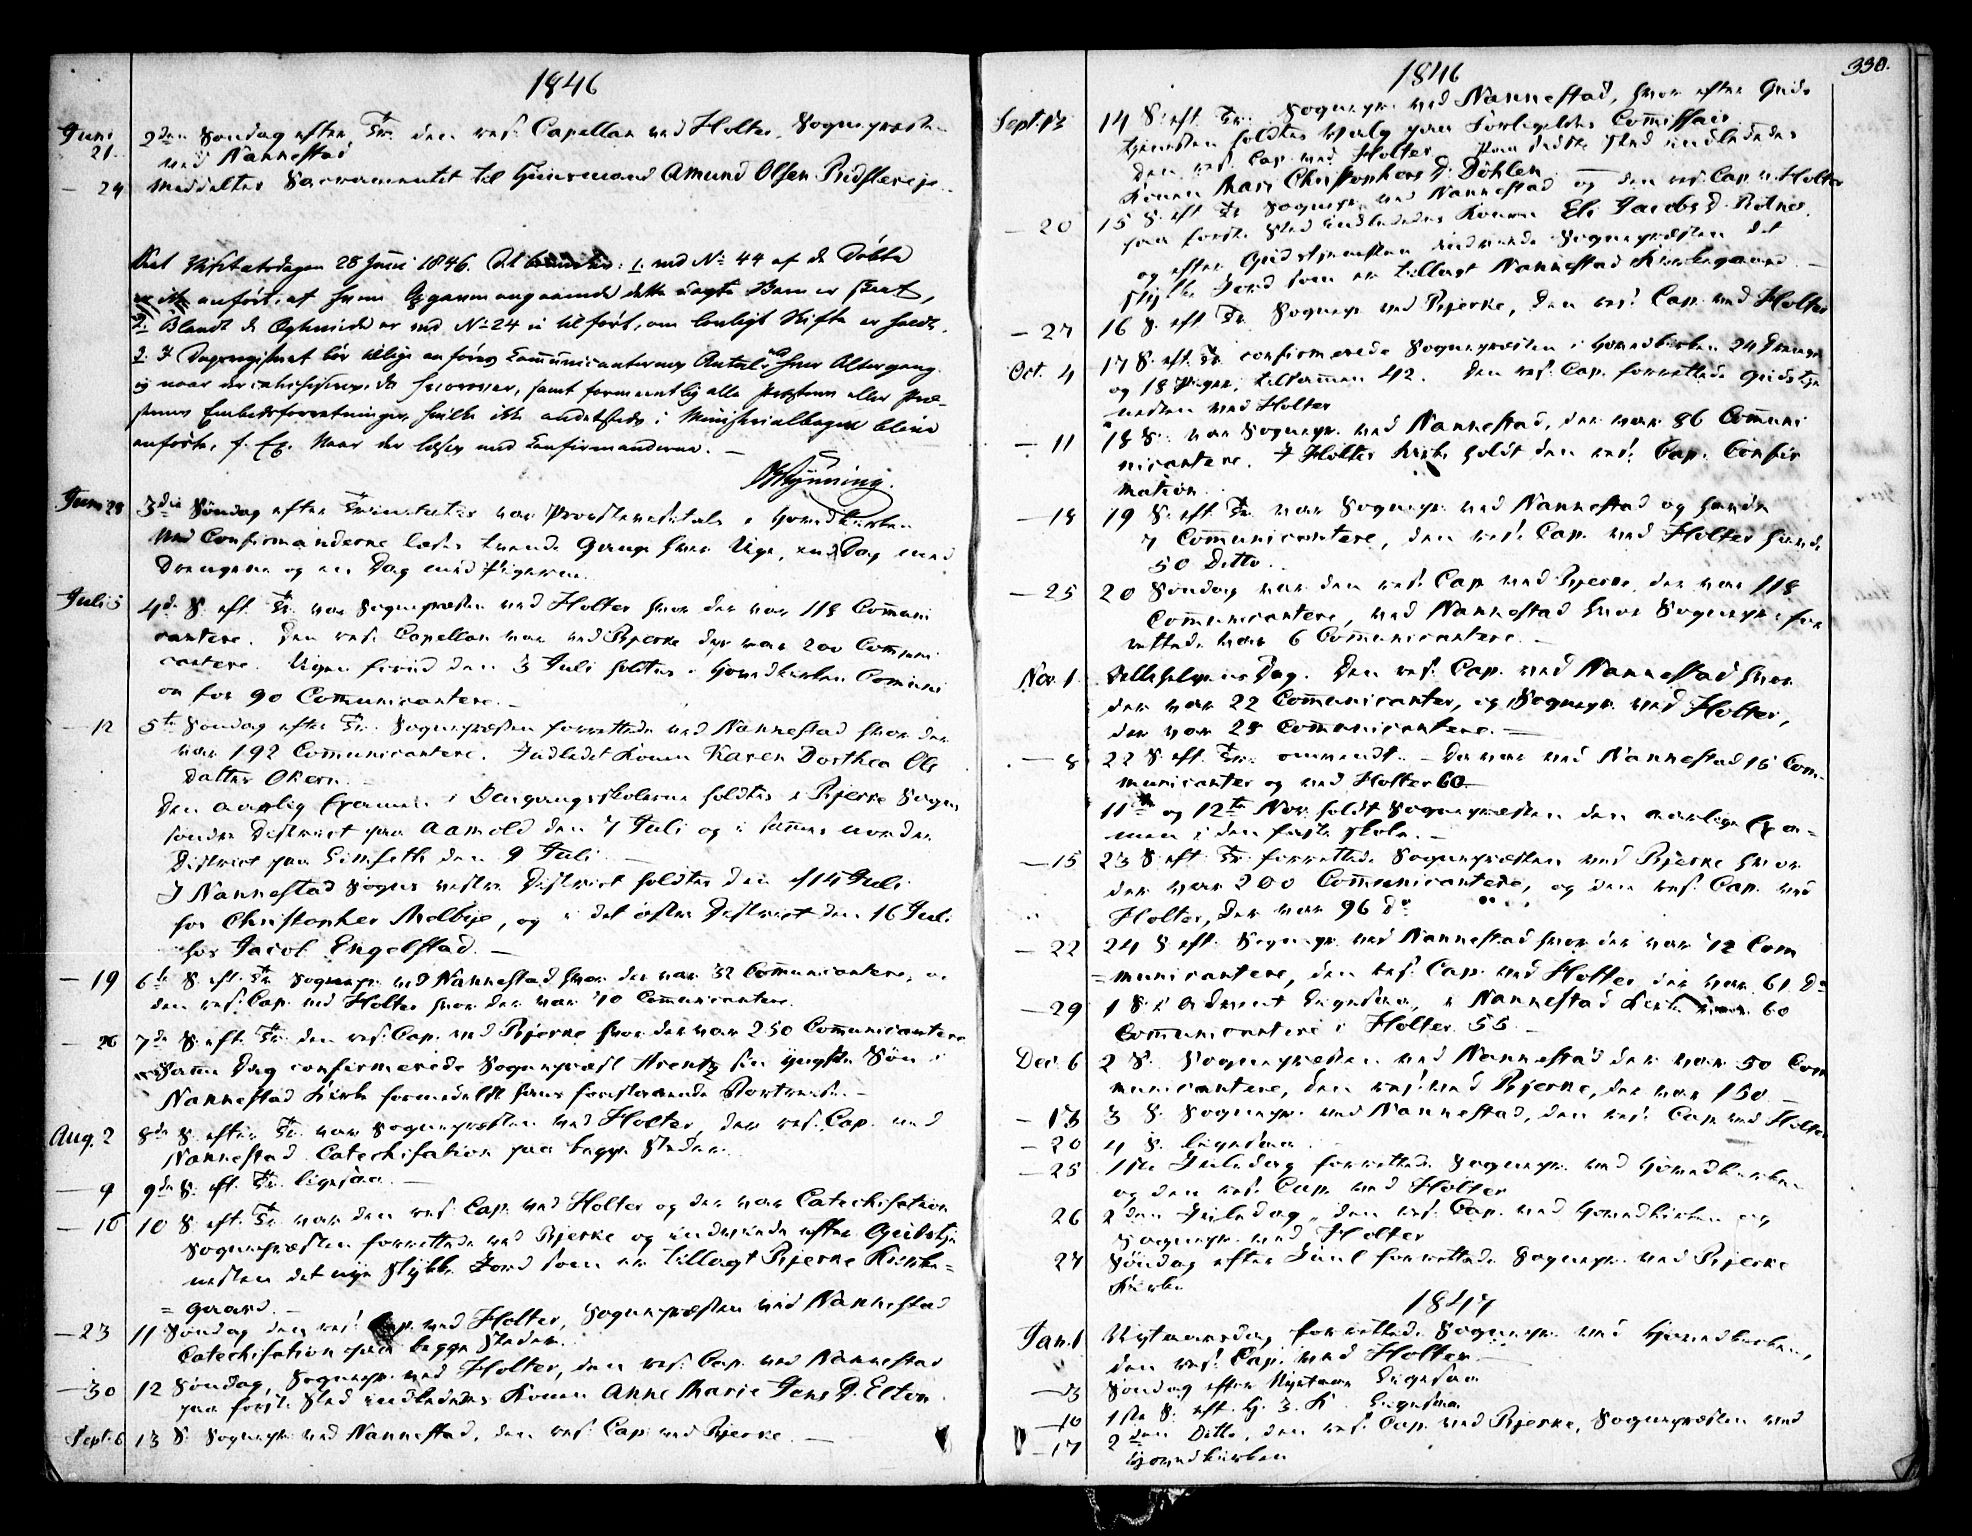 1846
Juni 21. 2den Søndag efter Tr. den res: Capellan ved Holter, Sognepræsten
ved Nannestad
— 24 meddeltes Sacramentet til Huusmand Amund Olsen
Ved Visitatsdagen 28 Juni 1846. 1. ved No 44 af de Døbte
anført, at
2. Blandt de Ægteviede er ved No 24 ei tilført, om lovligt Skifte er holdt.
3. I Dagregistret bør tillige anføres Communicanternes Antal ved hver Altergang
og naar der catechiseres, samt formeentlig alle Præstens eller Præ-
sternes Embedsforretninger, hvilke ikke andetsteds i Ministerialbogen blive
anførte, f. Ex. Naar der læses med Confirmanderne. —
Juni 28 3die Søndag efter Trinitatis var Provstevisitats i Hovedkirken
Med Confirmanderne læses tvende Gange hver Uge, en Dag med
Drengene og en Dag med Pigerne.
Juli 5 4de S. eft. Tr. var Sognepræsten ved Holter hvor der var 118 Communi
cantere. Den res: Capellan var ved Bjerke der var 200 Communi
cantere. Ugen forud den 3 Juli holdtes i Hovedkirken Comuni
on for 90 Comunicantere. —
— 12 5te Søndag efter Tr. Sognepræsten forrettede ved Nannestad hvor der
var 192 Communicantere. Indledet Konen Karen Dorthea Ols
datter Okern. —
Den aarlig Examen i Omgangsskolerne holdtes i Bjerke Sogns
søndre District paa Aamold den 7 Juli og i samme nordre
District paa den 9 Juli. —
I Nannestad Sogns vestre District holdtes den 14 Juli
hos Christopher Molbye, og i det østre District den 16 Juli
hos Jacob Engelstad. —
— 19 6te S. eft. Tr. Sognepr. ved Nannestad hvor der var 32 Communicantere, og
den res: Cap. ved Holter hvor der var 70 Communicantere.
— 26 7de S. eft. Tr. den res: Cap. ved Bjerke hvor der var 250 Communicantere
Samme Dag confirmerede Sognepræst Arentz sin yngste Søn i
Nannestad Kirke formedelst hans forestaaende Bortreise. —
Aug. 2 8de S. efter Tr. var Sognepræsten ved Holter, den res: Cap. ved
Nannestad. Catechisation paa begge Steder.
— 9 9de S. eft. Tr. ligesaa. —
— 16 10 S. eft. Tr. var den res: Cap. ved Holter og der var Catechisation
Sognepræsten forrettede ved Bjerke og indviede efter Gudstje
nesten det nye Stykke Jord som er tillagt Bjerke Kirke=
= gaard. —
— 23 11 Søndag den res: Cap. ved Holter, Sognepræsten ved Nannestad
Catechisation paa begge Steder.
— 30 12 Søndag, Sognepr. ved Holter, den res: Cap. ved Nannestad
paa første Sted indledes Konen Anne Marie Jens D. Elton.
Sept. 6 13 S. Sognepr. ved Nannestad, den res: Cap. ved Bjerke. —
330.
1846
Sept. 13 14 S. eft. Tr. Sognepr. ved Nannestad, hvor efter Guds
tjenesten holdtes Valg paa Forligelses Comissair.
den res: Cap. ved Holter. Paa første Sted indledes
Konen Mari Christophers D. Döhlen
— 20 15 S. eft. Tr. Sognepr. ved Nannestad og den res: Cap. v. Holter
paa første Sted indledes Konen Eli Jacobs D.
og efter Gudstjenesten indviede Sognepræsten det
Stykke Jord som er tillagt Nannestad Kirkegaard. —
— 27 16 S. eft. Tr. Sognepr. ved Bjerke, den res: Cap. ved Holter
Oct. 4 17 S. eft. Tr. confirmerede Sognepræsten i Hovedkirken 24 Drenge
og 18 Piger, tilsammen 42. Den res: Cap. forrettede Gudstje
nesten ved Holter
— 11 18 S. var Sognepr. ved Nannestad, der var 86 Communi
nicantere. I Holter Kirke holdt den res: Cap. Confir
mation.
— 18 19 S. eft. Tr. var Sognepr. ved Nannestad og havde
7 Communicantere, den res: Cap. ved Holter havde
50 Ditto.
— 25 20 Søndag var den res: Cap. ved Bjerke, der var 118
Communicantere, ved Nannestad hvor Sognepr. for
rettede var 6 Communicantere. —
Nov. 1 Allehelgens Dag. Den res: Cap. ved Nannestad hvor
der var 22 Communicanter, og Sognepr. ved Holter,
der var 28 Communicantere. —
— 8 22 S. eft. Tr. omvendt. — Der var ved Nannestad 15 Com-
municanter og ved Holter 60.
11te og 12te Nov. holdt Sognepræsten den aarlige Exa-
men i den faste Skole. —
— 15 23 S. eft. Tr. forrettede Sognepræsten ved Bjerke hvor
der var 200 Communicantere, og den res: Cap. ved
Holter, der var 96 do
— 22 24 S. eft. Sognepr. ved Nannestad hvor der var 12 Com
= municantere, den res: Cap. ved Holter der var 61 Do
— 29 1 S. i Advent ligesaa, i Nannestad Kirke var 60
Communicantere i Holter 55. —
Dec. 6 2 S. Sognepræsten ved Nannestad der var 50 Com
municantere, den res: ved Bjerke, der var 150 —
— 13 3 S. Sognepr. ved Nannestad, den res: Cap. ved Holter
— 20 4 S. ligesaa. —
— 25 1ste Juledag forrettede Sognepr. ved Hovedkirken
og den res: Cap. ved Holter
26 2den Juledag, den res: Cap. ved Hovedkirken og
Sognepr. ved Holter
27 Søndag efter Juul forrettede Sognepr. ved Bjerke
Kirke
1847
Jan. 1 Nytaarsdag forrettede Sognepr. ved Hovedkirken,
den res: Cap. ved Holter. —
— 3 Søndag efter Nyetaar ligesaa
— 10 1ste S. eft. H. 3. K. Ligesaa
— 17 2den Ditto, den res: Cap. ved Bjerke, Sognepræsten ved
Hovedkirken